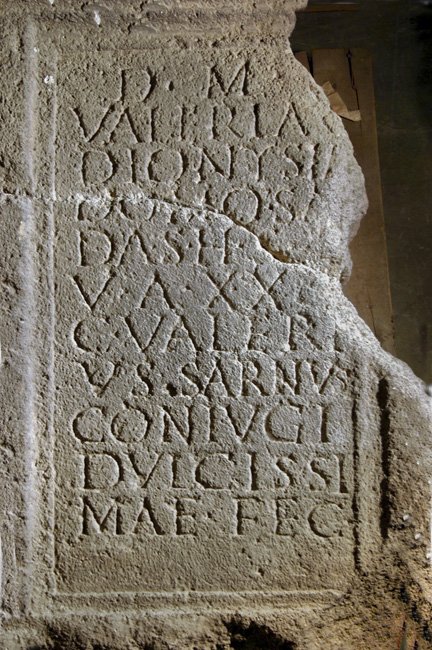 D · M
VALERIAE
DIONYSI
DAS · H
V · A · XX
C · VALERI
VS · SARNVS
CONIVGI
DVLCISSI
MAE · FEC